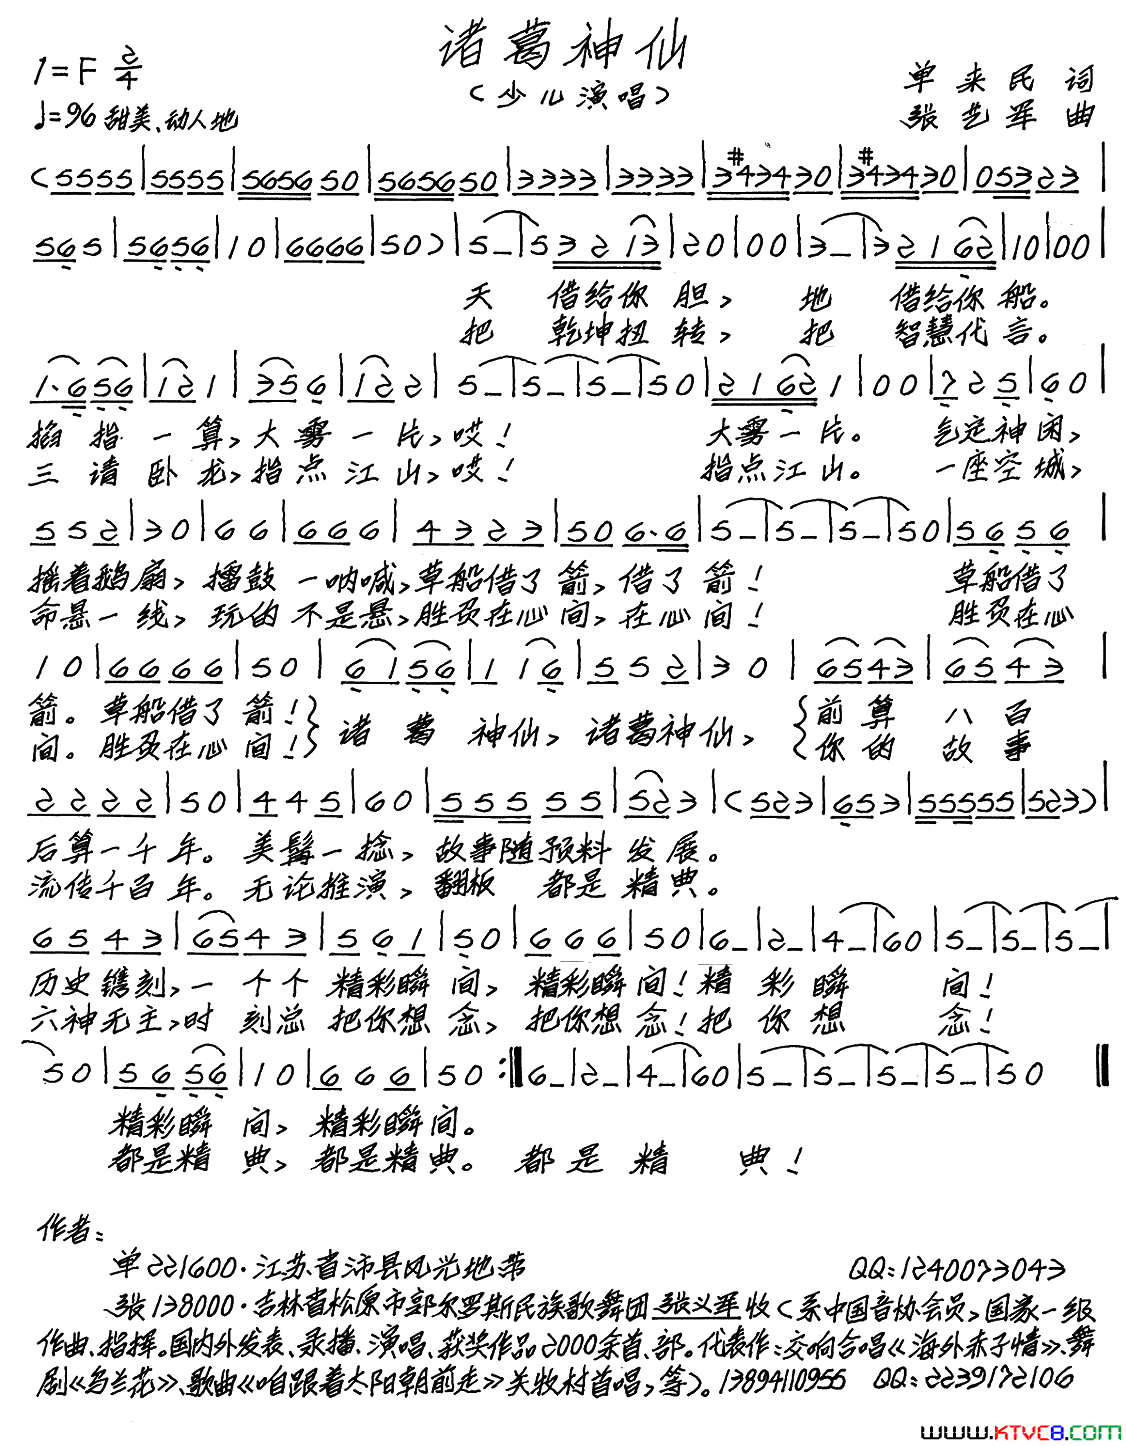 诸葛神仙
1=F 2/4
（少儿演唱）
单来民 词
♩=96 甜美、动人地
张艺军 曲
(5555|5555|565650|565650|3333|3333|3#43430|3#43430|05323|
565|5656|10|6666|50)|5_|53213|20|00|3_|32162|10|00|
天 借给你胆， 地 借给你船。
把 乾坤扭转， 把 智慧代言。
1·656|121|356|122|5_|5_|5_|50|21621|00|725|60|
掐指一算，大雾一片，哎！ 大雾一片。 气定神闲，
三请卧龙，指点江山，哎！ 指点江山。 一座空城，
552|30|66|666|4323|506·6|5_|5_|5_|50|5656|
摇着鹅扇，擂鼓一呐喊，草船借了箭，借了箭！ 草船借了
命悬一线，玩的不是悬，胜负在心间，在心间！ 胜负在心
10|6666|50|6156|116|552|30|6543|6543|
箭。草船借了箭！} 诸葛神仙，诸葛神仙， {前算八百
间。胜负在心间！} {你的故事
2222|50|445|60|55555|523|(523|653|55555|523)|
后算一千年。美髯一捻，故事随预料发展。
流传千百年。无论推演，翻板 都是精典。
6543|6543|561|50|666|50|6_|2_|4_|60|5_|5_|5_|
历史镌刻，一个个精彩瞬间，精彩瞬间！精彩瞬 间！
六神无主，时刻总把你想念，把你想念！把你想 念！
50|5656|10|666|50:‖6_|2_|4_|60|5_|5_|5_|5_|50‖
精彩瞬间，精彩瞬间。
都是精典，都是精典。都是精 典！
作者：
单221600·江苏省沛县风光地带 QQ:1240073043
张138000·吉林省松原市郭尔罗斯民族歌舞团 张义军收（系中国音协会员，国家一级
作曲、指挥。国内外发表、录播、演唱、获奖作品2000余首、部。代表作：交响合唱《海外赤子情》、舞
剧《乌兰花》、歌曲《咱跟着太阳朝前走》关牧村首唱，等）。13894110955 QQ:2239172106
www.KTVC8.com